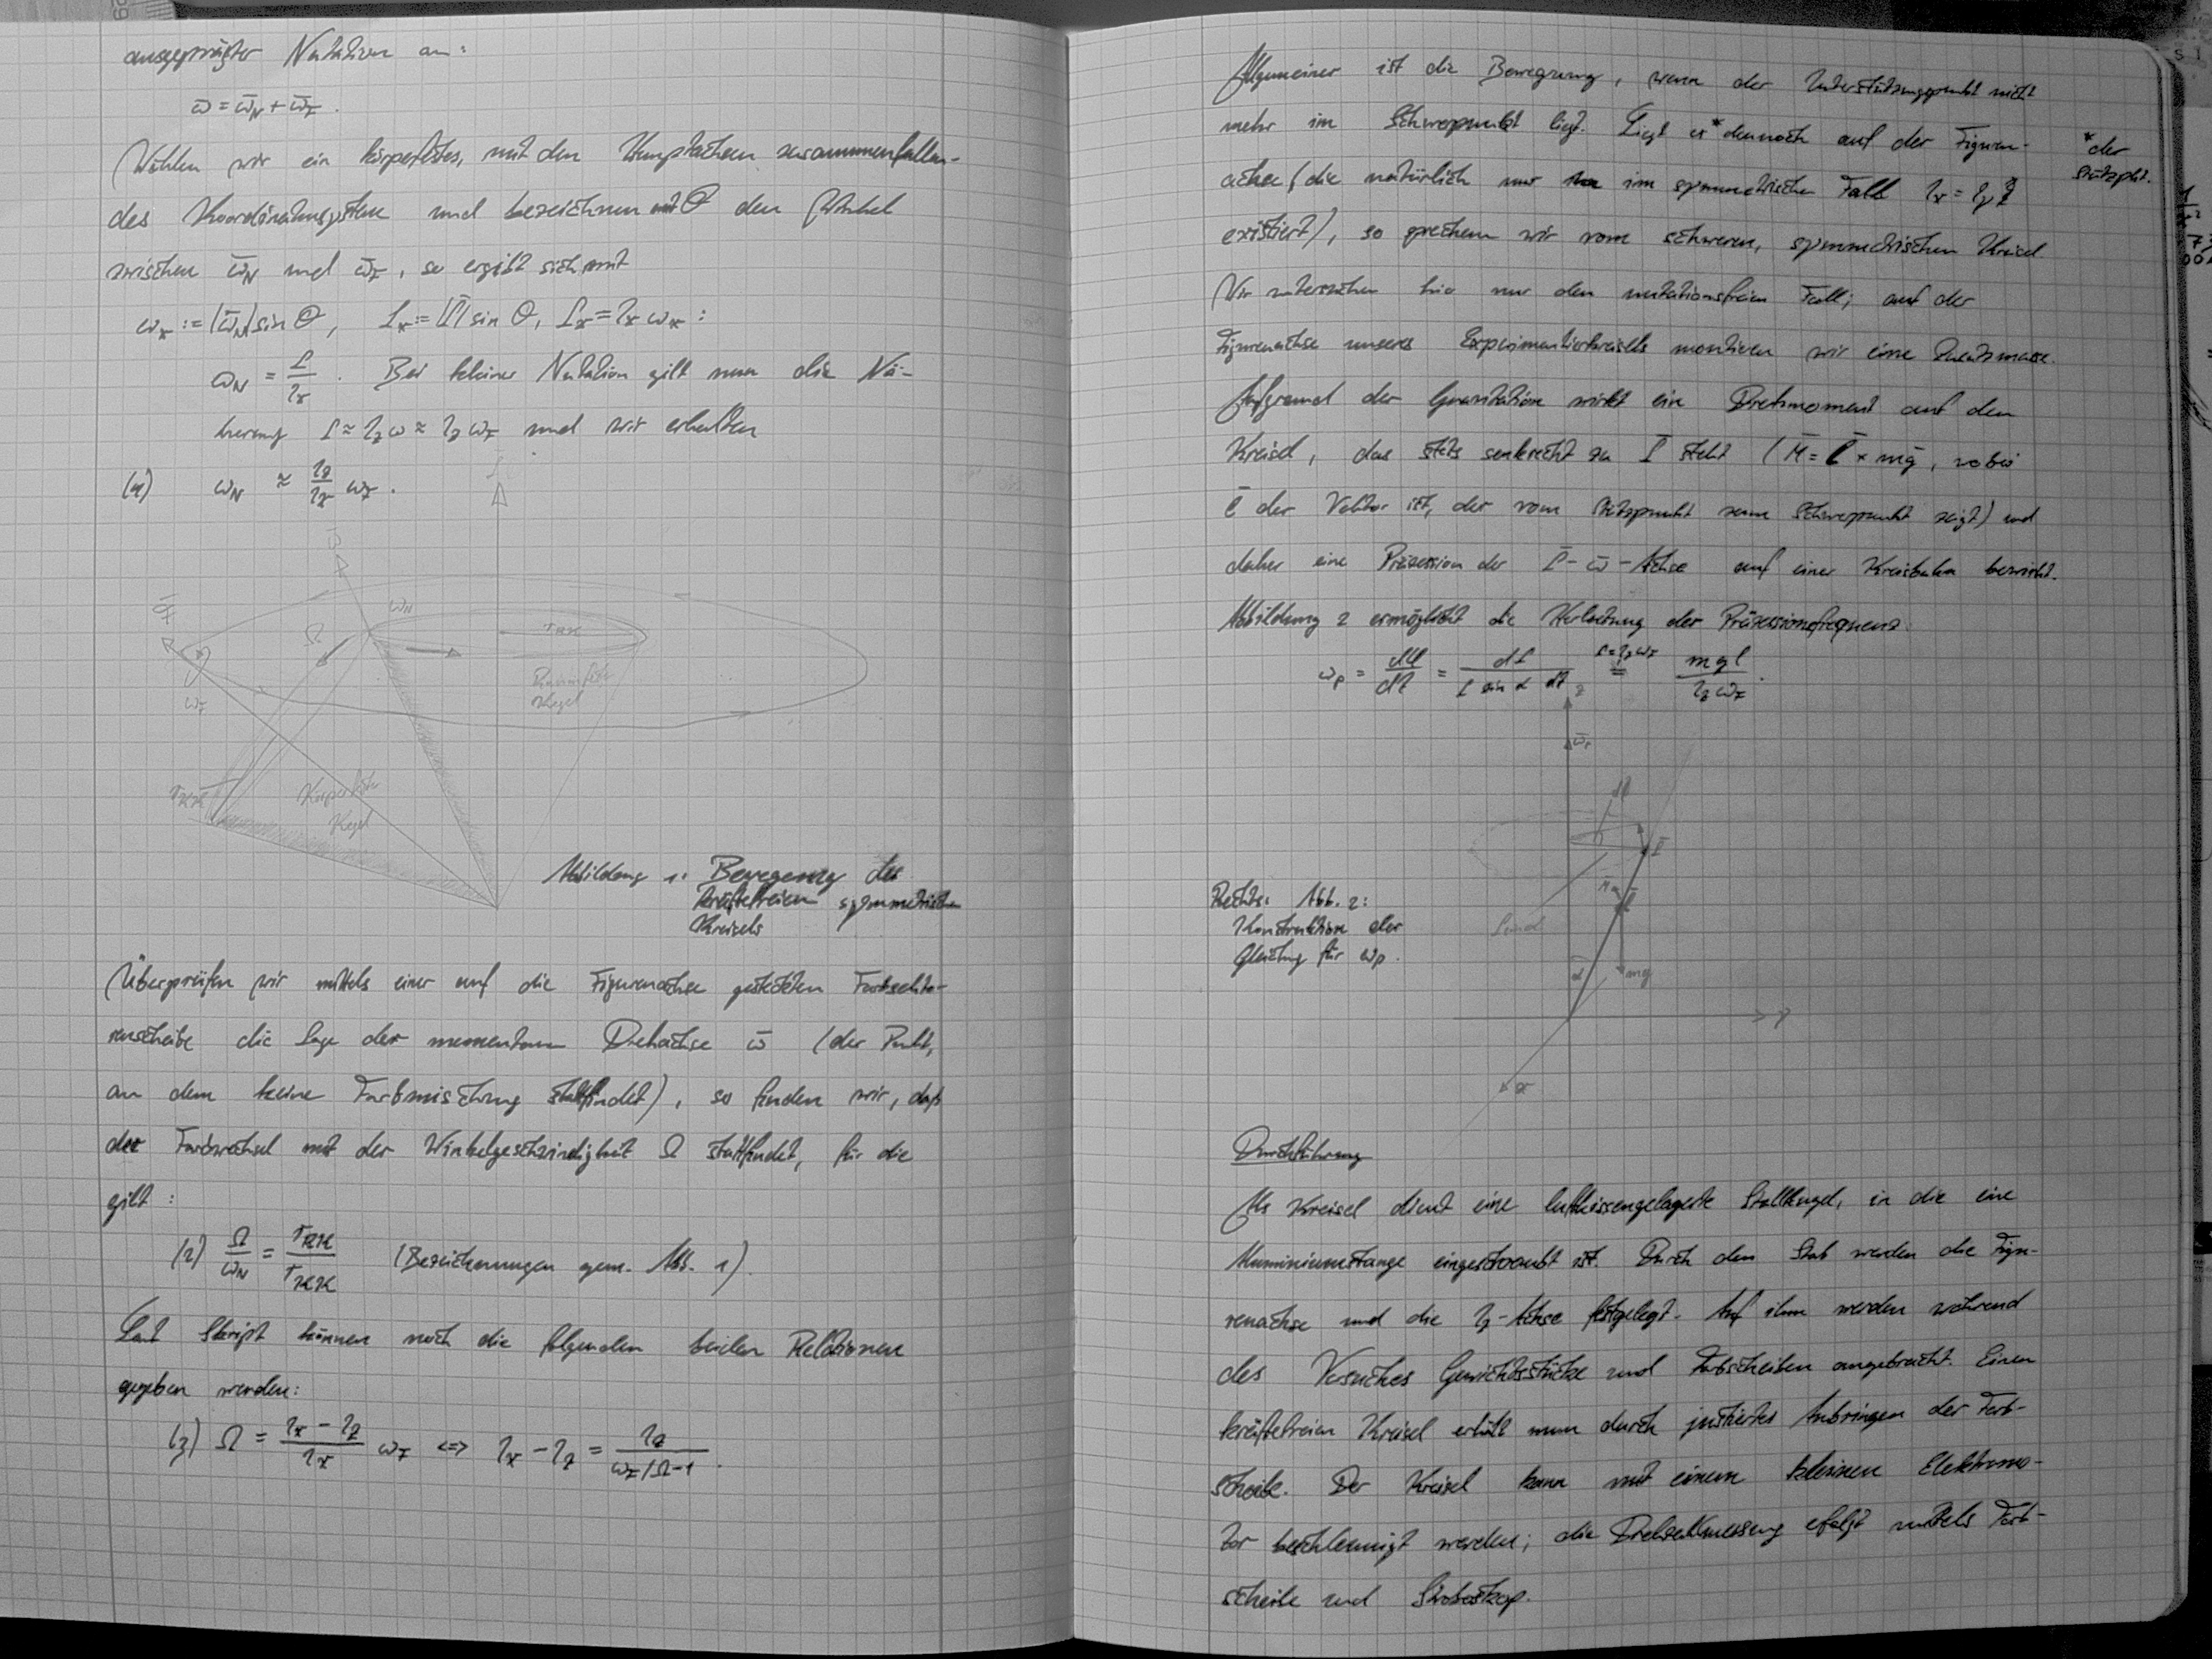 ausgeprägter Nutation an:
ω̄ = ω̄_N + ω̄_F.
Wählen wir ein körperfestes, mit den Hauptachsen zusammenfallen-
des Koordinatensystem und bezeichnen mit Θ den Winkel
zwischen ω̄_N und ω̄_F, so ergibt sich mit
ω_x := |ω̄_N| sin Θ, L_x := |L̄| sin Θ, L_x = I_x ω_x :
ω_N = L/I_x. Bei kleiner Nutation gilt nun die Nä-
herung L ≈ I_z ω ≈ I_z ω_F und wir erhalten
(1) ω_N ≈ I_z/I_x ω_F.
L̄
ω̄
F̄
ω_N
Ω
r_RK
Raumfester
Kegel
ω_F
r_KK
Körperfester
Kegel
Abbildung 1: Bewegung des
kräftefreien symmetrischen
Kreisels
Überprüfen wir mittels einer auf die Figurenachse gesteckten Farbsekto-
renscheibe die Lage der momentanen Drehachse ω̄ (der Punkt,
an dem keine Farbmischung stattfindet), so finden wir, daß
der Farbwechsel mit der Winkelgeschwindigkeit Ω stattfindet, für die
gilt:
(2) Ω/ω_N = r_RK/r_KK (Bezeichnungen gem. Abb. 1).
Laut Skript können noch die folgenden beiden Relationen
gegeben werden:
(3) Ω = (I_x − I_z)/I_x ω_F <=> I_x − I_z = I_z/(ω_F/Ω−1).
Allgemeiner ist die Bewegung, wenn der Unterstützungspunkt nicht
mehr im Schwerpunkt liegt. Liegt er* dennoch auf der Figuren-
*der
Stützpkt.
achse (die natürlich nur im symmetrischen Fall I_x = I_y
existiert), so sprechen wir vom schweren, symmetrischen Kreisel.
Wir untersuchen hier nur den nutationsfreien Fall; auf der
Figurenachse unseres Experimentierkreisels montieren wir eine Zusatzmasse.
Aufgrund der Gravitation wirkt ein Drehmoment auf den
Kreisel, das stets senkrecht zu L̄ steht (M̄ = l̄ × mḡ, wobei
l̄ der Vektor ist, der vom Stützpunkt zum Schwerpunkt zeigt) und
daher eine Präzession der L̄-ω̄-Achse auf einer Kreisbahn bewirkt.
Abbildung 2 ermöglicht die Herleitung der Präzessionsfrequenz:
ω_p = dφ/dt = dL/(L sin α dt) =(L=I_z ω_F) mgl/(I_z ω_F).
z
ω̄_p
dφ
L̄
M̄
l̄
L sin α
α
mg
y
x
Rechts: Abb. 2:
Konstruktion der
Gleichung für ω_p.
Durchführung
Als Kreisel dient eine luftkissengelagerte Stahlkugel, in die eine
Aluminiumstange eingeschraubt ist. Durch den Stab werden die Figu-
renachse und die I_z-Achse festgelegt. Auf ihm werden während
des Versuches Gewichtsstücke und Farbscheiben angebracht. Einen
kräftefreien Kreisel erhält man durch justiertes Anbringen der Farb-
scheibe. Der Kreisel kann mit einem kleinen Elektromo-
tor beschleunigt werden; die Drehzahlmessung erfolgt mittels Farb-
scheibe und Stroboskop.